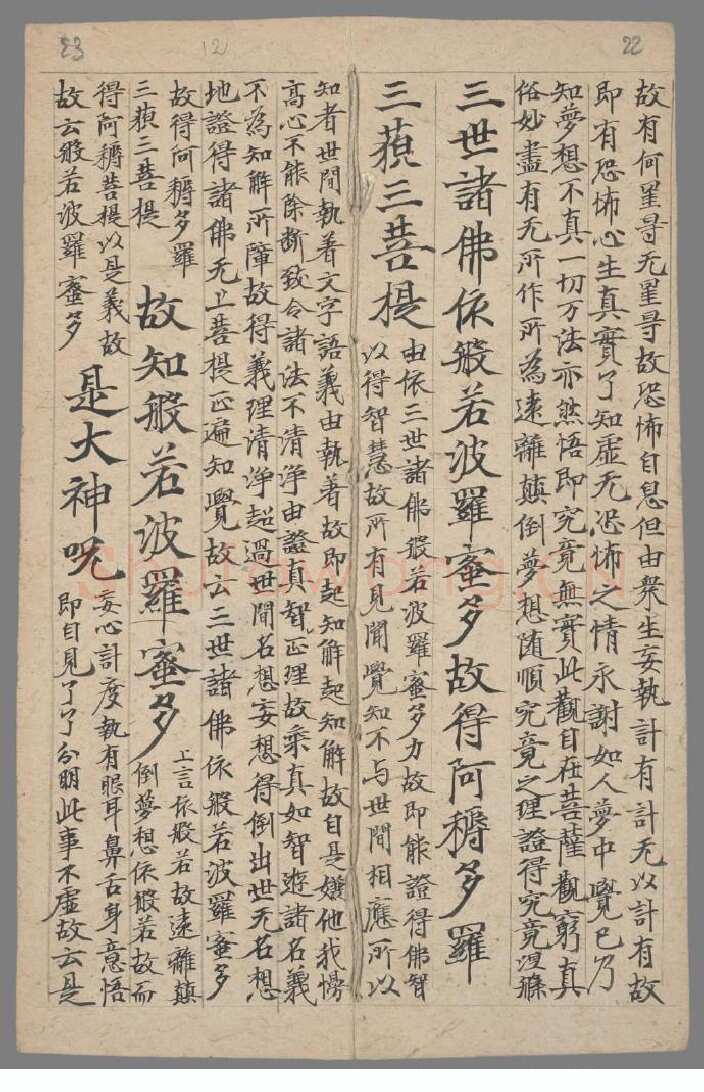 22
故有何罣㝵无罣㝵故恐怖自息但由衆生妄執計有計无以計有故
即有恐怖心生真實了知虛无恐怖之情永謝如人夢中覺已乃
知夢想不真一切万法亦然悟即究竟無實此觀自在菩薩觀窮真
俗妙盡有无所作所為遠離顛倒夢想随順究竟之理證得究竟
三世諸佛依般若波羅蜜多故得阿耨多羅
三藐三菩提
由依三世諸佛般若波羅蜜多力故即能證得佛智
以得智慧故所有見聞覺知不与世間相應所以
知者世間執着文字語義由執着故即起知解起知解故自是嫌他我慢
高心不能除断致令諸法不清淨由證真智正理故乘真如智遊諸名義
不為知解所障故得義理清淨超過世間名想妄想得倒出世无名想
地證得諸佛无上菩提正遍知覺故云三世諸佛依般若波羅蜜多
故得阿耨多羅
三藐三菩提
故知般若波羅蜜多
上言依般若故遠離顛
倒夢想依般若故而
得阿耨菩提以是義故
故云般若波羅蜜多
是大神呪
妄心計度執有眼耳鼻舌身意悟
即自見了了分明此事不虛故云是
23
12